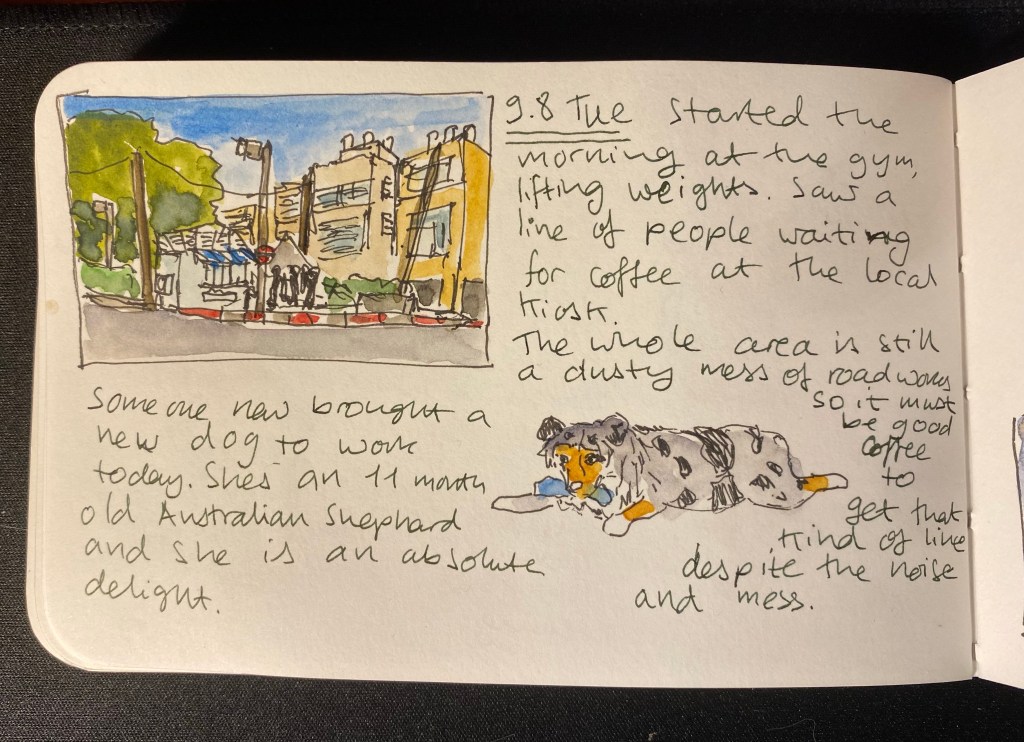 9.8 Tue Started the
morning at the gym,
lifting weights. Saw a
line of people waiting
for coffee at the local
kiosk.
The whole area is still
a dusty mess of roadworks
so it must
be good
coffee
to
get that
kind of line
despite the noise
and mess.
Someone new brought a
new dog to work
today. She's an 11 month
old Australian Shephard
and she is an absolute
delight.